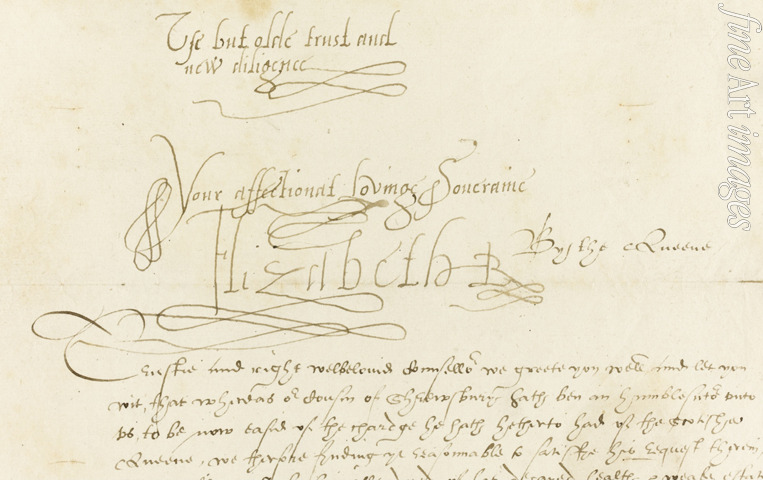 Use but olde trust and
new diligence
Your affectionat loving Soueraine
Elizabeth R
By the Queene
Trustie and right welbeloved Counsellor we greete you well and let you
wit, that whereas or Cousin of Shrewsbury hath ben an humble sutor unto
us, to be now eased of the chardge he hath hetherto had of the Scotishe
Queene, we therfore finding yt reasonnable to satisfie his request therein
fine Art images